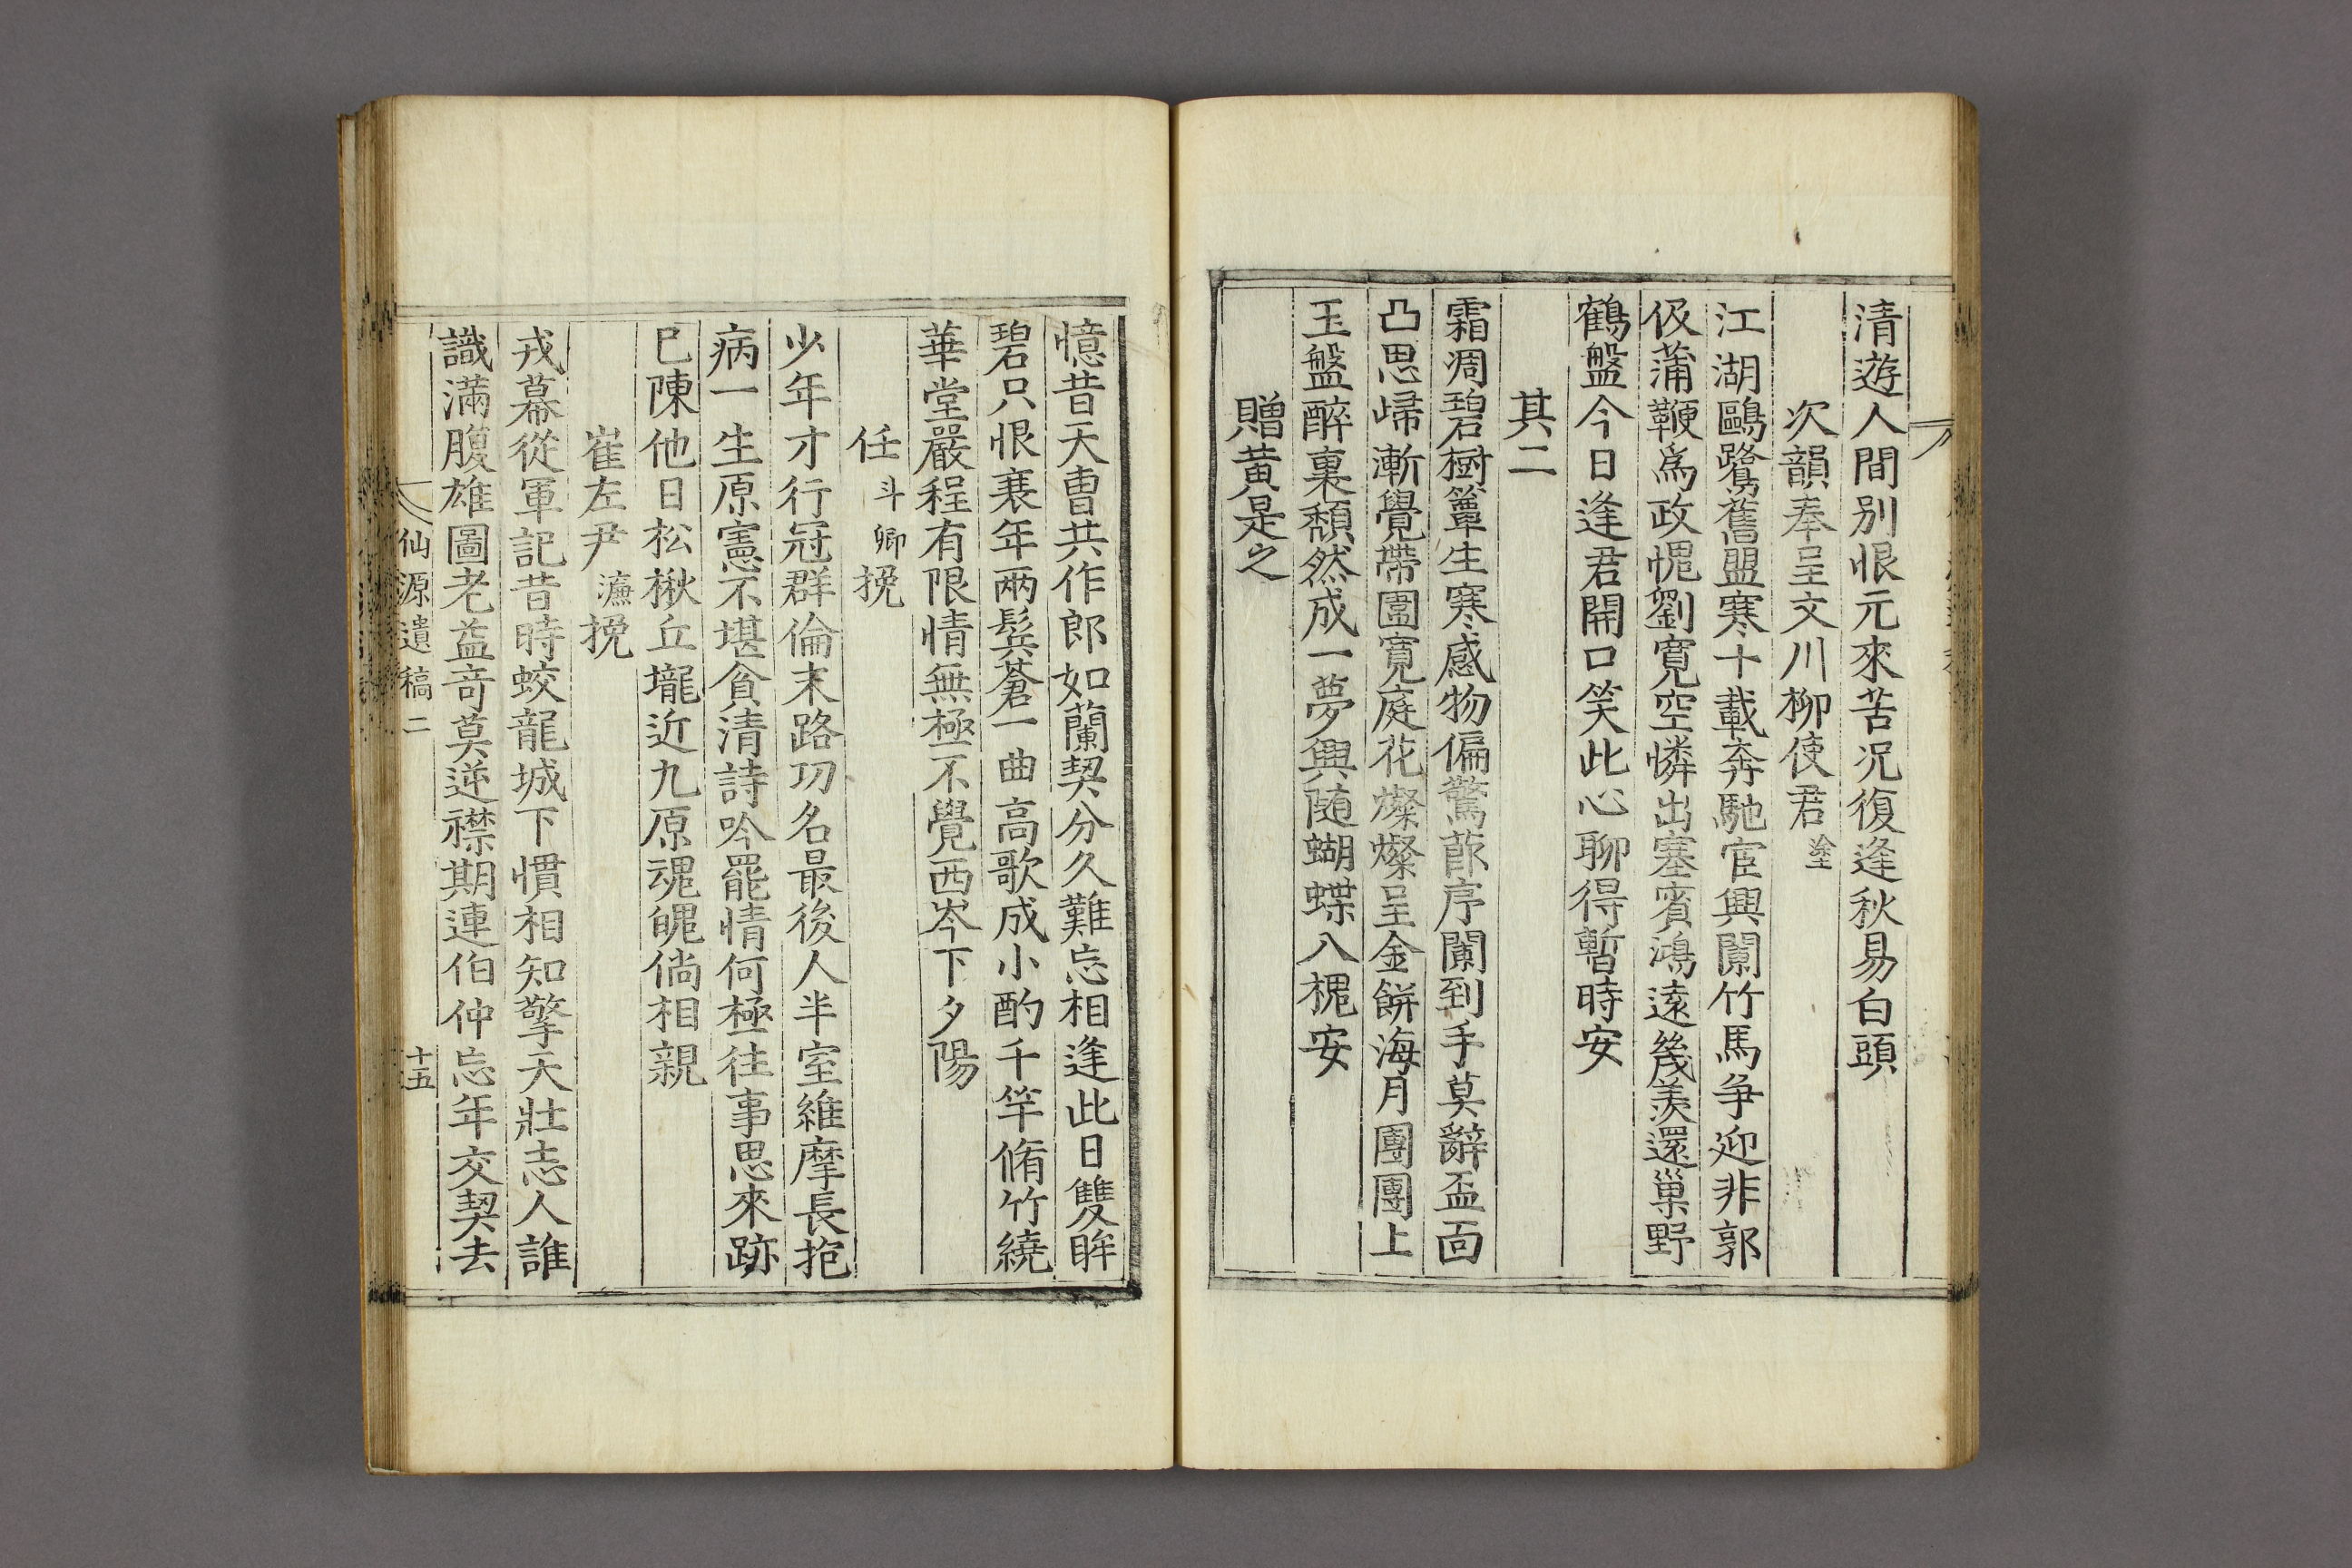 清遊人間別恨元來苦況復逢秋易白頭
次韻奉呈文川柳使君塗
江湖鷗鷺舊盟寒十載奔馳宦興闌竹馬爭迎非郭
伋蒲鞭爲政愧劉寬空憐出塞賓鴻遠幾羨還巢野
鶴盤今日逢君開口笑此心聊得暫時安
其二
霜凋碧樹簟生寒感物偏驚莭序闌到手莫辭盃面
凸思歸漸覺帶圍寬庭花燦燦呈金餅海月團團上
玉盤醉裏頹然成一夢興随蝴蝶入槐安
贈黃是之
憶昔天曹共作郎如蘭契分久難忘相逢此日雙眸
碧只恨衰年兩鬂蒼一曲高歌成小酌千竿脩竹繞
華堂嚴程有限情無極不覺西岑下夕陽
任斗卿挽
少年才行冠群倫末路功名最後人半室維摩長抱
病一生原憲不堪貧清詩吟罷情何極往事思來跡
已陳他日松楸丘壠近九原魂魄倘相親
崔左尹濂挽
戎幕從軍記昔時蛟龍城下慣相知擎天壯志人誰
識滿腹雄圖老益竒莫逆襟期連伯仲忘年交契去
仙源遺稿二
十五